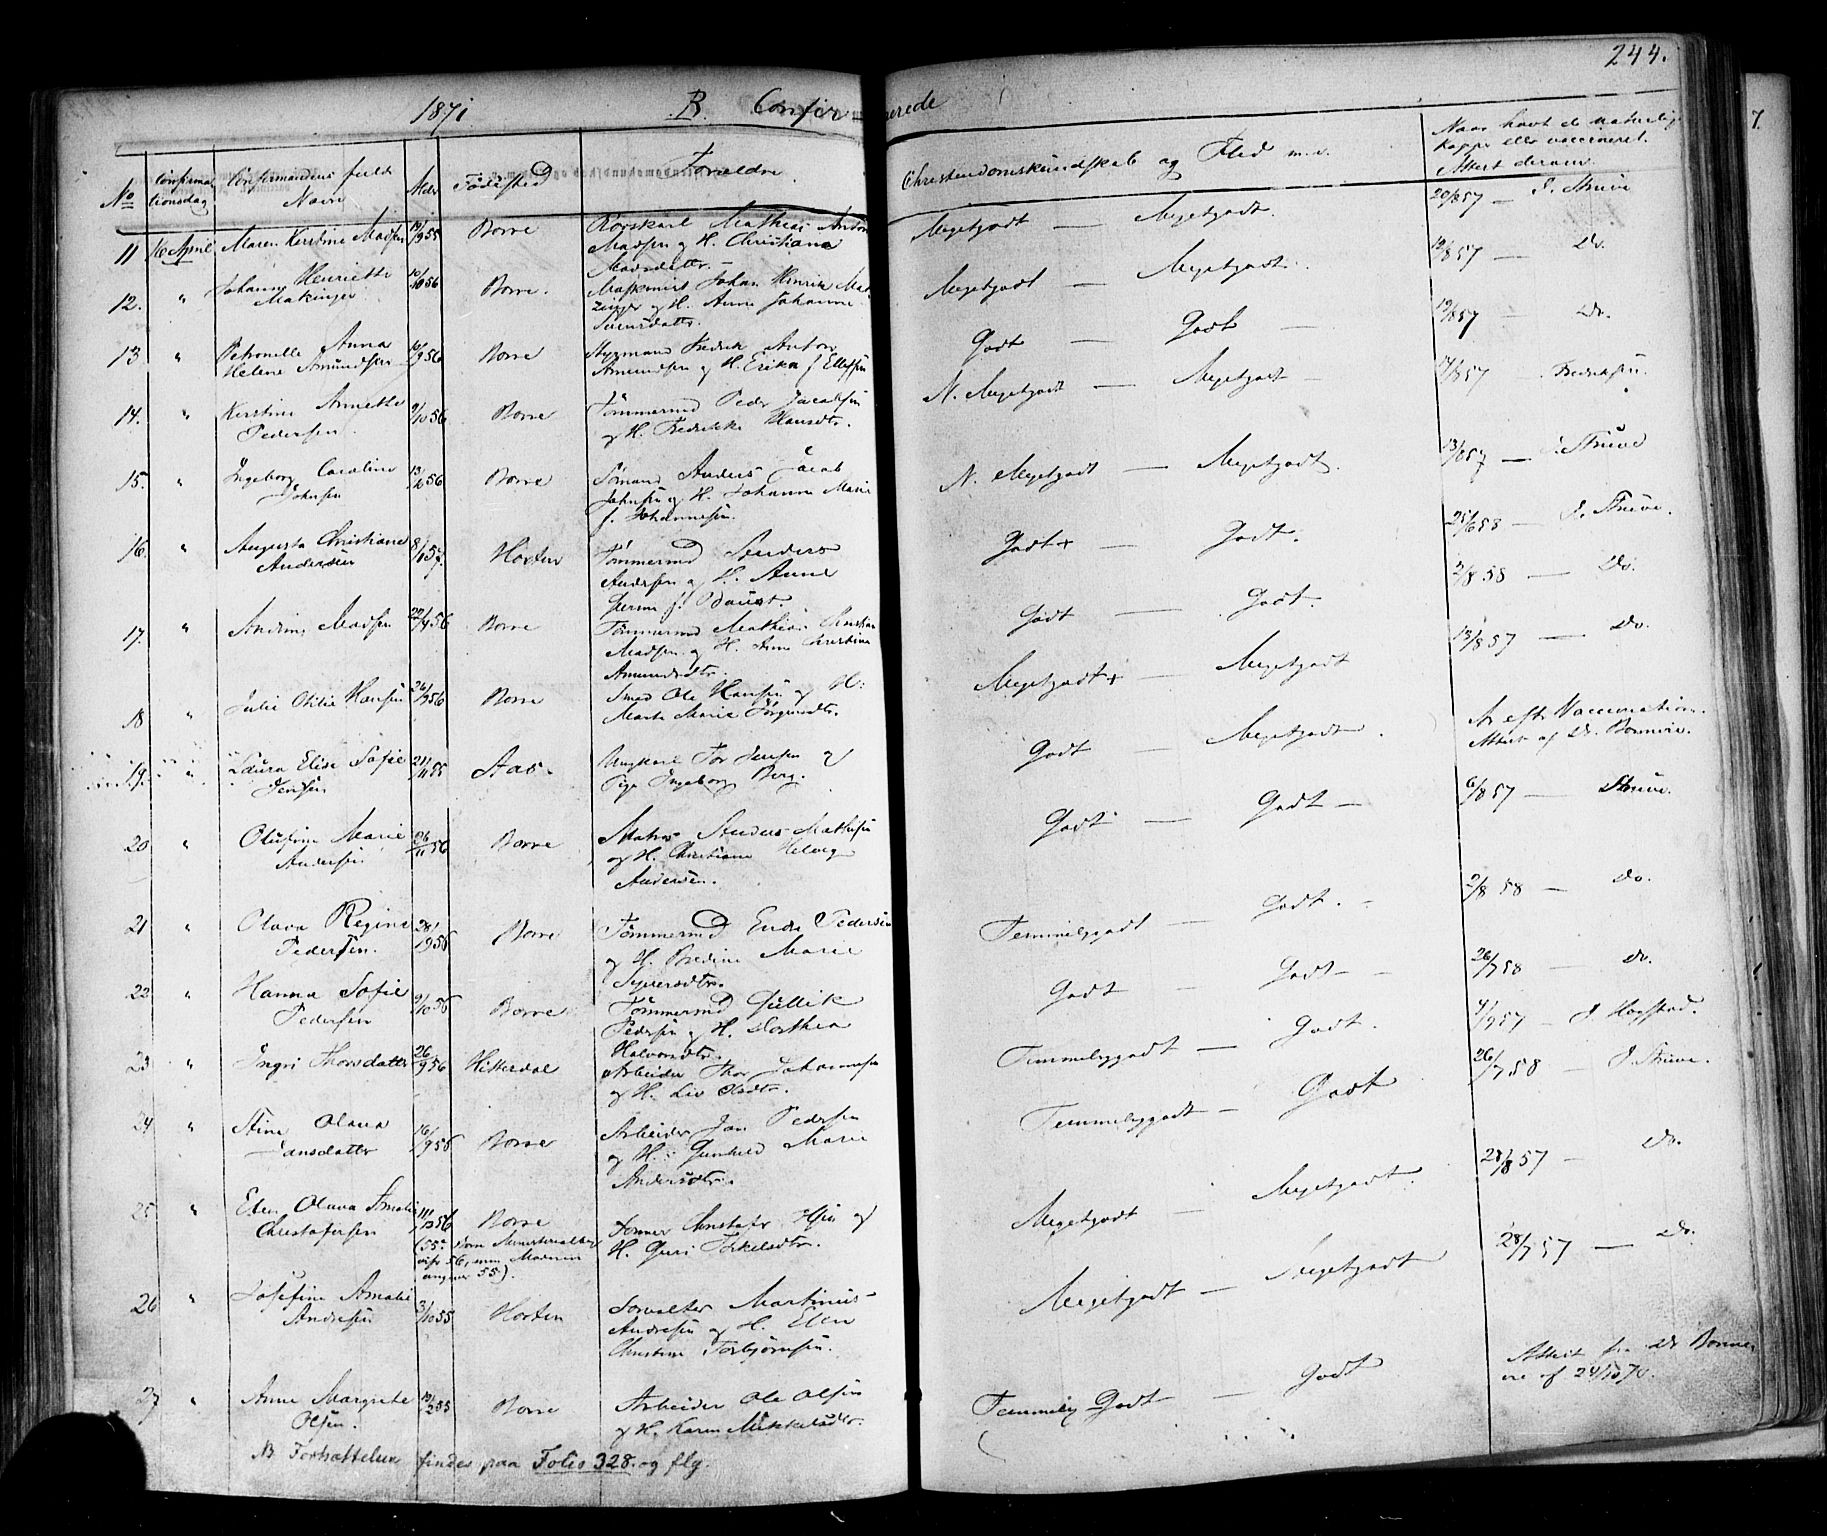 244.
1871. B. Confirmerede
No Confirmationsdag Confirmandens fulde Navn Alder Fødested Forældre Christendomskundskab og Flid m.v. Naar havt de naturlige Kopper eller vaccineret. Attest derom.
11 16 April Maren Kirstine Madsen 55 Borre Mathias Anton
Madsen og H. Christiane
Madsdatter. Megetgodt — Megetgodt. 57 — J. Struve
12. " Johanne Henriette 10/10 56 Borre. Johan Henrik
og H. Anne Johanne
Svensdattr. Megetgodt — Megetgodt. 57 — Do.
13 " Petronelle Anna
Helene Amundsen 56 Borre Styrmand Fredrik Anton
Amundsen og H. Erika f. Ellefsen Godt — Godt — 19/8 57 Do.
14. " Kirstine Annette
Pedersen 9/10 56 Borre Tømmermd Peder Jacobsen
og H. Fredrikke Hansdtr. N. Megetgodt — Megetgodt — 57 — Fredriksen.
15. " Ingeborg Caroline
Johnsen 56 Borre Sømand Anders Jacob
Johnsen og H. Johanne Marie
f. Johannesen. N. Megetgodt — Megetgodt. 13/8 57 — J. Struve
16. " Augusta Christiane
Andersen 8/1 57. Horten Tømmermd Anders
Andersen og H. Anne
f. Godt+ — Godt. 25/6 58 — J. Struve.
17. " Andrine Madsen 56 Borre Tømmermd Mathias Christian
Madsen og H. Anne Christine
Amundsdtr. Godt — Godt. 2/8 58 — Do.
18 " Julie Otilie Hansen 56 Borre Smed Ole Hansen og H:
Marte Marie Jørgensdtr. Megetgodt+ — Megetgodt 13/8 57 — Do.
19. " Laura Elise Sofie
Jensen 21/11 55 Aas. Ungkarl Tor Jensen og
Pige Ingeborg Berg. Godt — Megetgodt. Ar efter Vaccination.
Attest af Dr. Bonnevie.
20 " Olufine Marie
Andersen 26/11 56 Borre Matros Anders Mathisen
og H. Christiane Helvig
Andersen. Godt — Godt — 6/8 57 — Struve.
21 " Olava Regine
Pedersen. 28/9 56 Borre Tømmermd Endre Pedersen
og H. Bredine Marie
Syversdtr. Temmeliggodt — Godt. — 2/8 58 — Do.
22 " Hanna Sofie
Pedersen 9/10 56 Borre Tømmermd Gullik
Pedersen og H. Dorthea
Halvorsdtr. Godt — Godt — 26/7 58 — Do.
23 " Ingri Thorsdatter 26/9 56 Hitterdal Arbeider Thor Johannesen
og H. Liv Olsdtr. Temmeliggodt — Godt. 4/9 57 — J. Hogstad.
24 " Stine Olava
Jansdatter 16/9 56 Borre Arbeider Jan Pedersen
og H.: Gunhild Marie
Andersdtr. Temmeliggodt — Godt 26/7 58 — J. Struve.
25 " Elen Olava Amalie
Christofersen 11/12 56 Borre
(55? Borre Ministerialbog
viser 56, men Moderen
angiver 55). Christofer
H. Guri Torkelsdtr. Megetgodt — Megetgodt. 28/8 57 — Do.
26 " Josefine Amalie
Andresen 3/10 55 Horten Forvalter Martinus
Andresen og H. Elen
Christine Torbjørnsen. Megetgodt — Megetgodt 28/7 57 — Do.
27 " Anne Margrete
Olsen. 55 Borre Arbeider Ole Olsen
og H. Karen Mikkelsdtr. Temmelig Godt — Godt Attest fra Dr Bonnevie
af 24/10 70.
NB Fortsættelsen findes paa Folio 328. og flg.